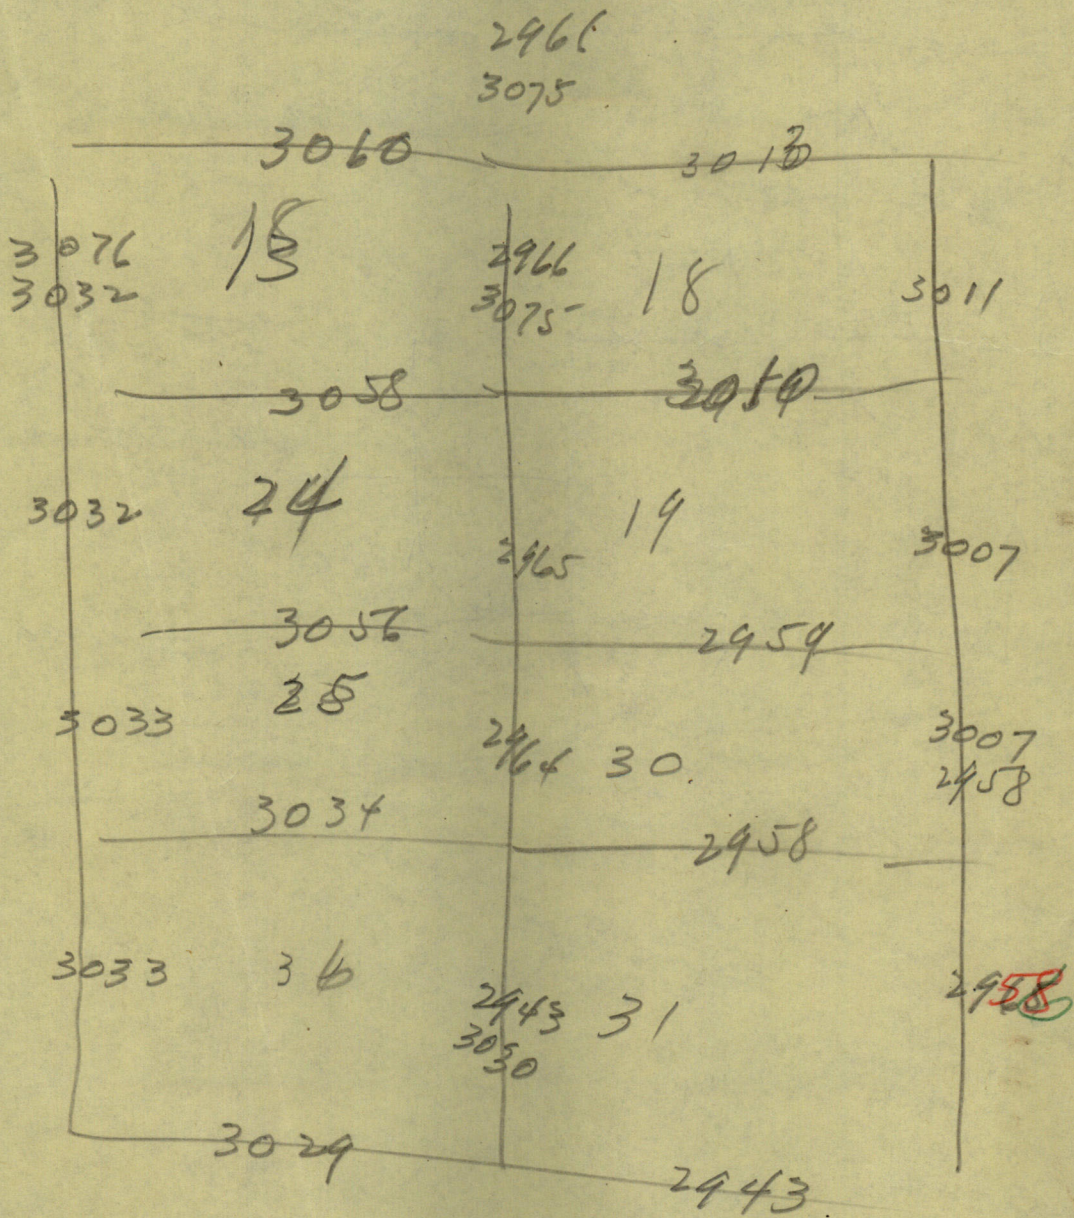 2966
3075
3060
3013
3076
3032
13
2966
3075
18
3011
3058
3032
24
2965
19
3007
3056
2959
25
3033
2964
30
3007
2958
3034
2958
3033
36
2943
3030
31
2958
3029
2943